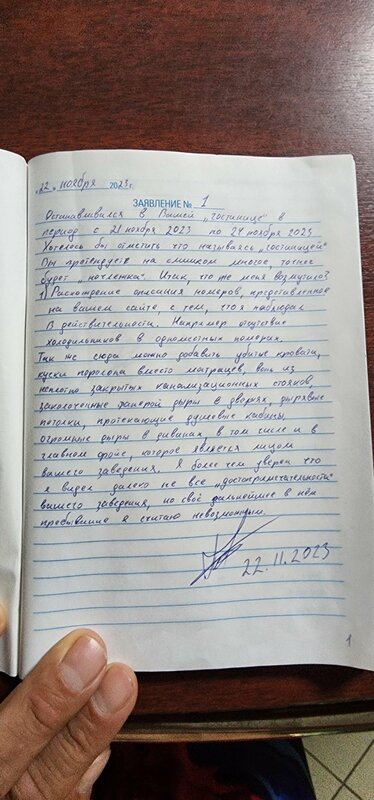 „22" ноября 2023 г.
ЗАЯВЛЕНИЕ № 1
Останавливался в Вашей „гостинице" в
период с 21 ноября 2023 по 24 ноября 2023
Хотелось бы отметить что называясь „гостиницей"
Вы претендуете на слишком многое, точнее
будет „ночлежка". Итак, что же меня возмутило?
1) Расхождение описания номеров, представленное
на вашем сайте, с тем, что я наблюдал
в действительности. Например отсутствие
холодильников в одноместных номерах.
Так же сюда можно добавить убитые кровати,
куски поролона вместо матрацев, вонь из
неплотно закрытых канализационных стояков,
заколоченные фанерой дыры в дверях, дырявые
потолки, протекающие душевые кабины,
огромные дыры в диванах, в том числе и в
главном фойе, которое является лицом
вашего заведения. Я более чем уверен что
я видел далеко не все „достопримечательности"
вашего заведения, но своё дальнейшее в нём
пребывание я считаю невозможным.
22.11.2023
1